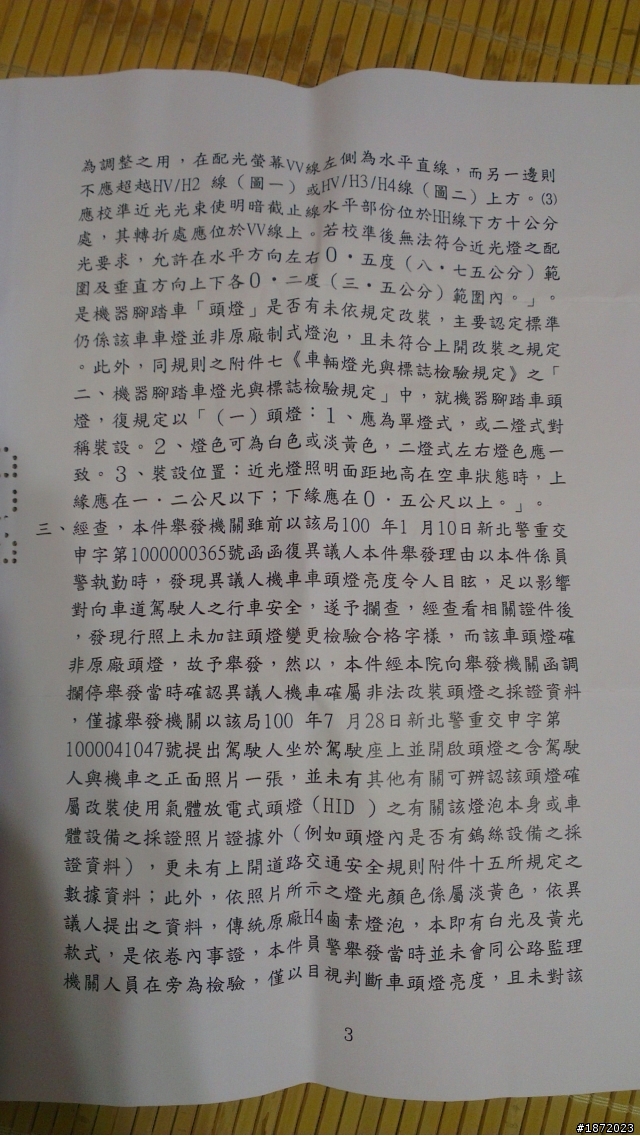 為調整之用，在配光螢幕VV線左側為水平直線，而另一邊則
不應超越HV/H2 線（圖一）或HV/H3/H4線（圖二）上方。⑶
應校準近光光束使明暗截止線水平部份位於HH線下方十公分
處，其轉折處應位於VV線上。若校準後無法符合近光燈之配
光要求，允許在水平方向左右０．五度（八．七五公分）範
圍及垂直方向上下各０．二度（三．五公分）範圍內。」。
是機器腳踏車「頭燈」是否有未依規定改裝，主要認定標準
仍係該車車燈並非原廠制式燈泡，且未符合上開改裝之規定
。此外，同規則之附件七《車輛燈光與標誌檢驗規定》之「
二、機器腳踏車燈光與標誌檢驗規定」中，就機器腳踏車頭
燈，復規定以「（一）頭燈：１、應為單燈式，或二燈式對
稱裝設。２、燈色可為白色或淡黃色，二燈式左右燈色應一
致。３、裝設位置：近光燈照明面距地高在空車狀態時，上
緣應在一．二公尺以下；下緣應在０．五公尺以上。」。
三、經查，本件舉發機關雖前以該局100 年1 月10日新北警重交
申字第1000000365號函函復異議人本件舉發理由以本件係員
警執勤時，發現異議人機車車頭燈亮度令人目眩，足以影響
對向車道駕駛人之行車安全，遂予攔查，經查看相關證件後
，發現行照上未加註頭燈變更檢驗合格字樣，而該車頭燈確
非原廠頭燈，故予舉發，然以，本件經本院向舉發機關函調
攔停舉發當時確認異議人機車確屬非法改裝頭燈之採證資料
，僅據舉發機關以該局100 年7 月28日新北警重交申字第
1000041047號提出駕駛人坐於駕駛座上並開啟頭燈之含駕駛
人與機車之正面照片一張，並未有其他有關可辨認該頭燈確
屬改裝使用氣體放電式頭燈（HID ）之有關該燈泡本身或車
體設備之採證照片證據外（例如頭燈內是否有鎢絲設備之採
證資料），更未有上開道路交通安全規則附件十五所規定之
數據資料；此外，依照片所示之燈光顏色係屬淡黃色，依異
議人提出之資料，傳統原廠H4鹵素燈泡，本即有白光及黃光
款式，是依卷內事證，本件員警舉發當時並未會同公路監理
機關人員在旁為檢驗，僅以目視判斷車頭燈亮度，且未對該
3
#1872023